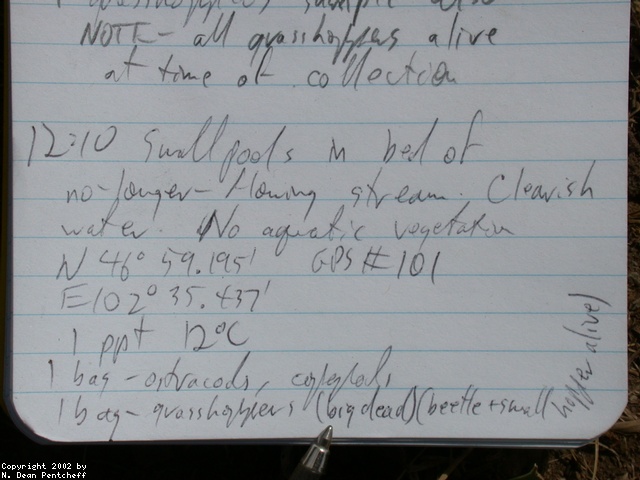 1 grasshoppers sample also
NOTE- all grasshoppers alive
at time of collection
12:10 Small pools in bed of
no-longer-flowing stream. Clearish
water. No aquatic vegetation
N 46° 59.195' GPS #101
E102° 35.437'
1 ppt 12°C
1 bag - ostracods, copepods
1 bag - grasshoppers (big dead)(beetle + small
hopper alive)
Copyright 2002 by
N. Dean Pentcheff